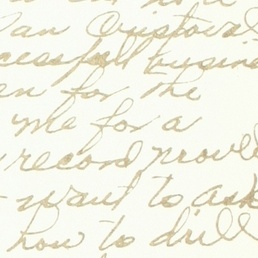 San Cristoval
cessfull busine
en for the
me for a
record provell
want to ask
how to drill